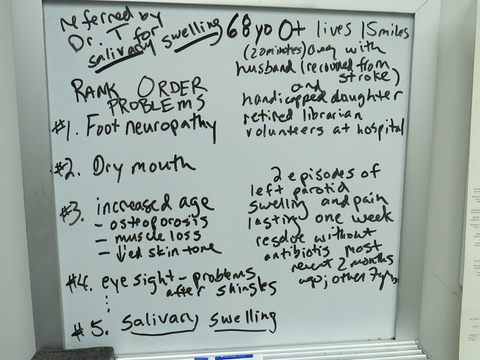 referred by
Dr. T for
salivary swelling
RANK ORDER
PROBLEMS
#1. Foot neuropathy
#2. Dry mouth
#3. increased age
- osteoporosis
- muscle loss
- ↓ed skin tone
#4. eyesight - problems
after shingles
#5. salivary swelling
68 yo O+ lives 15 miles
(20 minutes) away with
husband (recovered from
stroke)
and
handicapped daughter
retired librarian
volunteers at hospital
2 episodes of
left parotid
swelling and pain
lasting one week
resolve without
antibiotis most
recent 2 months
ago; other 7 yrs